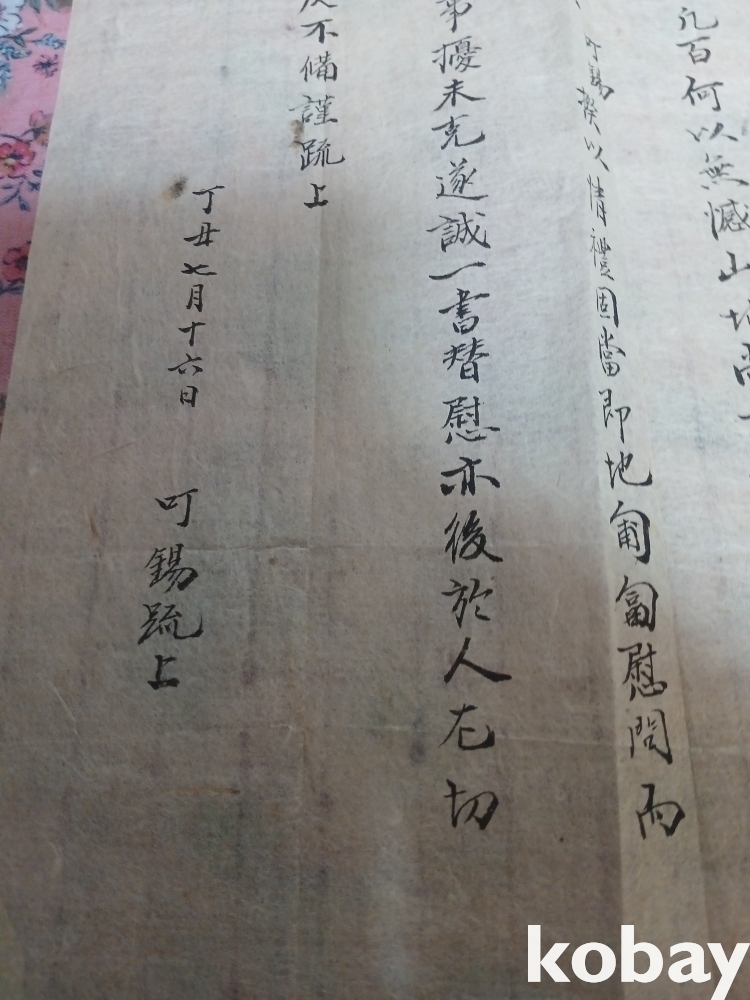 凡百何以無憾山地
叮錫揆以情禮固當即地匍匐慰問而
擾未克遂誠一書替慰亦後於人尤切
不備謹疏上
丁丑七月十六日
叮錫疏上
kobay